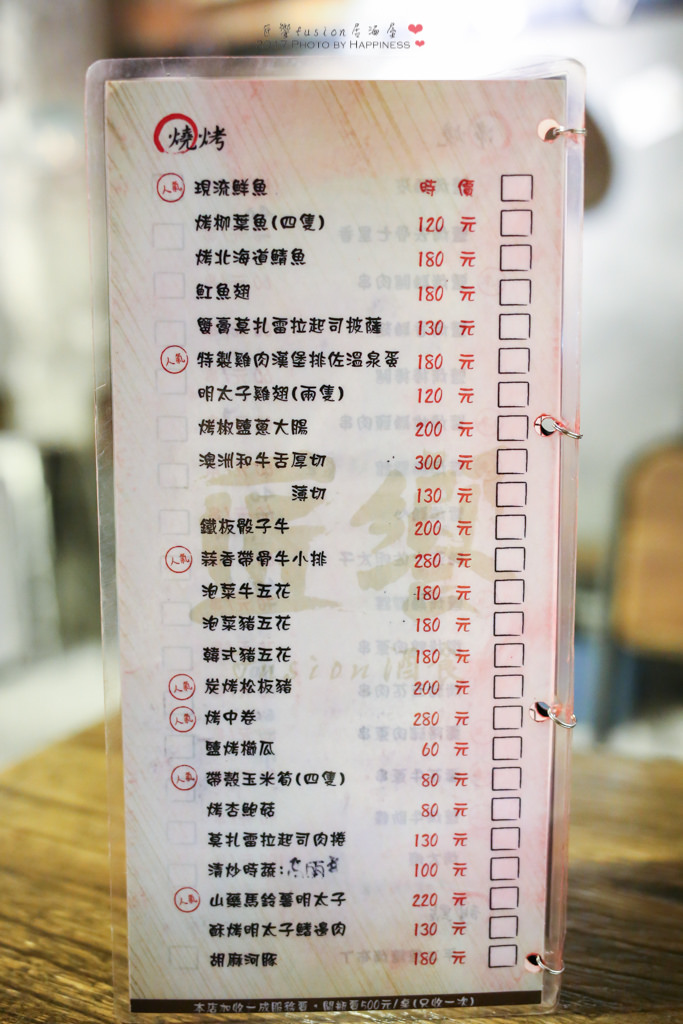 fusion居酒屋
2017 PHOTO BY HAPPINESS
燒烤
人氣 現流鮮魚 時 價
烤柳葉魚(四隻) 120 元
烤北海道鯖魚 180 元
魟魚翅 180 元
蟹膏莫扎雷拉起司披薩 130 元
人氣 特製雞肉漢堡排佐溫泉蛋 180 元
明太子雞翅(兩隻) 120 元
烤椒鹽蔥大腸 200 元
澳洲和牛舌厚切 300 元
薄切 130 元
鐵板骰子牛 200 元
人氣 蒜香帶骨牛小排 280 元
泡菜牛五花 180 元
泡菜豬五花 180 元
韓式豬五花 180 元
人氣 炭烤松板豬 200 元
人氣 烤中卷 280 元
鹽烤櫛瓜 60 元
人氣 帶殼玉米筍(四隻) 80 元
烤杏鮑菇 80 元
莫扎雷拉起司肉捲 130 元
清炒時蔬: 100 元
人氣 山藥馬鈴薯明太子 220 元
酥烤明太子鰭邊肉 130 元
胡麻河豚 180 元
本店加收一成服務費·開瓶費500元/桌(只收一次)